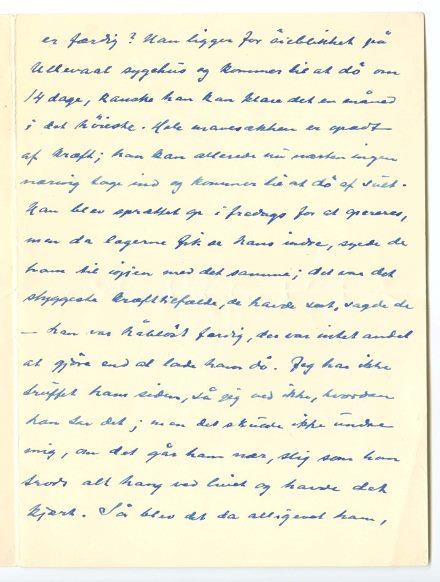 er færdig? Han ligger for øieblikket på
Ullevaal sygehus og kommer til at dø om
14 dage, kanske han kan klare det en måned
i det høieste. Hele mavesækken er opædt
af kræft; han kan allerede nu næsten ingen
næring tage ind og kommer til at dø af sult.
Han blev sprættet op i fredags for at opereres,
men da lægerne fik se hans indre, syede de
ham til igjen med det samme; det var det
styggeste kræfttilfælde, de havde set, sagde de
— han var håbløst færdig, der var intet andet
at gjøre end at lade ham dø. Jeg har ikke
truffet ham siden, så jeg ved ikke, hvordan
han tar det; men det skulde ikke undre
mig, om det går ham nær, slig som han
trods alt hang ved livet og havde det
kjært. Så blev det da alligevel ham,